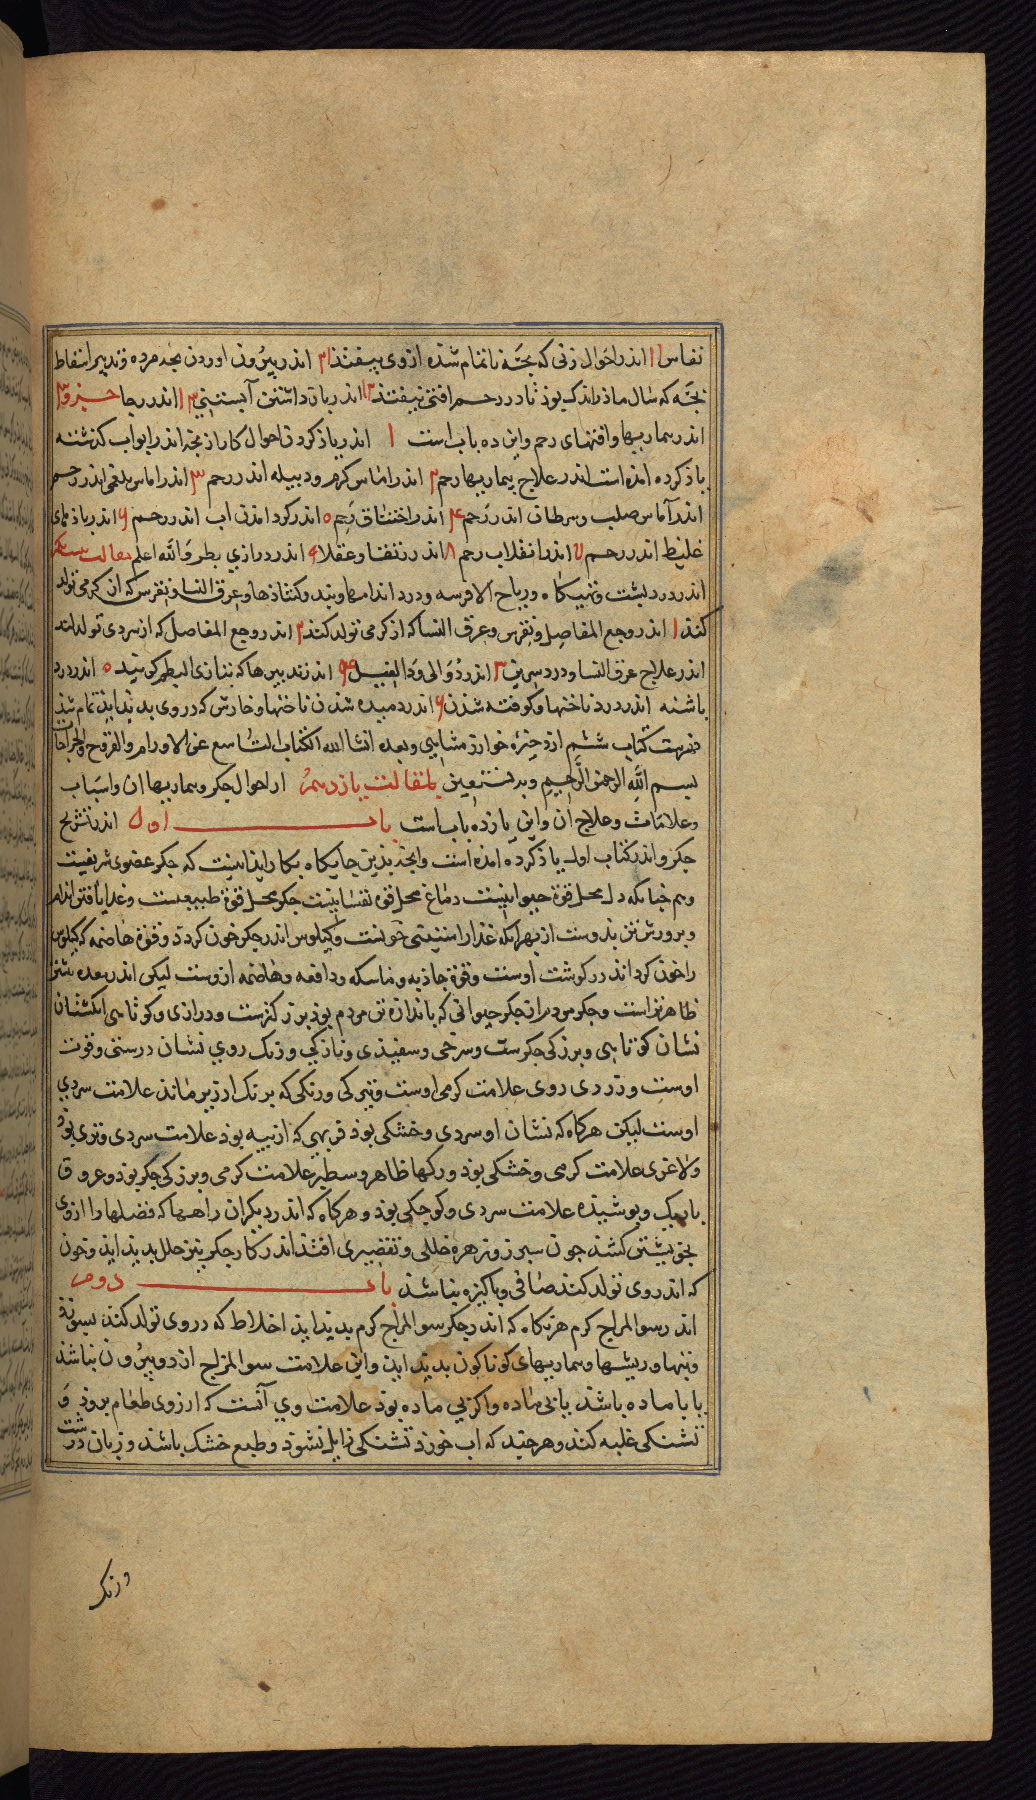 نفاس ۱۱ اندر احوال زنی که بچّه ناتمام شذه ازوی بیفتذ ۱۲ اندر بیرون اوردن بچهٔ مرده و تدبیر اسقاط
بچّه که سال ماذر اندک بوذ تا در رحم افتی نیفتذ ۱۳ اندر بازداشتن آبستنی ۱۴ اندر رجا جزو ۳
اندر بیماریها وافتهای رحم واین ده باب است ۱ اندر یاذ کردن احوال کاراز بچه اندر ابواب کذشته
یاذ کرده امذه است اندر علاج بیماریها رحم ۲ اندر اماس کرم و دبیله اندر رحم ۳ اندر اماس بلغمی اندر رحم
اندر آماس صلب و سرطان اندر رحم ۴ اندر اختناق رحم ۵ اندر کرد امذن اب اندر رحم ۶ اندر باذهای
غلیظ اندر رحم ۷ اندر انقلاب رحم ۸ اندر رتقا و عقلا ۹ اندر درازی بظر والله اعلم مقالت بیستم
اندر درد پشت و تهیکاه و ریاح الافرسه و درد اندامها وبند وکشاذها وعرق النسا ونقرس که از کرمی تولد
کنذ ۱ اندر وجع المفاصل ونقرس وعرق النسا که از کرمی تولد کنذ ۲ اندر وجع المفاصل که از سردی تولد کند
اندر علاج عرق النسا ودرد سرین ۳ اندر دوالی وداالفیل ۴ اندر تدبیرها که بتازی البطر کویند ۵ اندر درد
پاشنه اندر درد ناخنها وکوفته شذن ۶ اندر دمیده شدن ناخنها وخارش که در وی بدید ایذ تمام شذ
فهرست کتاب ششم از ذخیره خوارزمشاهی وبعده انشاالله الکتاب التاسع عن الاورام والقروح والجراحات
بسم الله الرحمن الرحیم وبه نستعین المقالت یازدهم از احوال جکر وبیماریها ان واسباب
وعلامات وعلاج ان واین یازده باب است باب اول اندر تشریح
جکر واندر کتاب اول یاذ کرده امذه است وانچه بذین جایکاه بکار ایذ اینست که جکر عضوی شریفست
وهم چنانکه دل محل قوة حیوانیست دماغ محل قوة نفسانیست جکر محل قوة طبیعست وغذا یافتن اندام
وپرورش تن بذوست از بهر انکه غذا راستینتی خونست وکیلوس اندر جکر خون کردذ و قوّة هاضمه که کیلوس
را خون کرداند در کوشت اوست وقوة جاذبه وماسکه ودافعه وهاضمه ازوست لیکن اندر معده بیشتر
ظاهرتر است وجکر مردم از جکر حیوانی که باندازه تن مردم بوذ بزرکترست ودرازی وکوتاهی انکشتان
نشان کوتاهی وبزرکی جکرست وسرخی وسفیذی ونازکی وزنک روی نشان درستی وقوت
اوست وزردی روی علامت کرمی اوست وتیرکی ورنکی که برنک ارزیز مانذ علامت سردی
اوست لیکن هرکاه که نشان او سردی وخشکی بوذ فربهی که از پیه بوذ علامت سردی وتری بوذ
ولاغری علامت کرمی وخشکی بوذ ورکها ظاهر وسطبر علامت کرمی وبزرکی جکر بوذ وعروق
باریک وپوشیذه علامت سردی وکوچکی بوذ وهرکاه که اندر دیکران راهها که فضلها را ازوی
بخویشتن کشند چون سپرز وزهره خللی وتقصیری افتذ اندر کار جکر نیز خلل بدیذ ایذ وخون
که اندر وی تولد کنذ صافی وپاکیزه نباشذ باب دوم
اندر سوالمزاج کرم هرکاه که اندر جکر سوالمزاج کرم بدیذ ایذ اخلاط که در وی تولد کند سوخته
وتبها وریشها وبیماریهای کوناکون بدید ایذ واین علامت سوالمزاج از دو بیرون نباشذ
یا با ماده باشذ یا بی ماده واکر بی ماده بوذ علامت وی آنست که ارزوی طعام بروذ و
تشنکی غلبه کند وهرچند که اب خورذ تشنکی زایل نشوذ وطبع خشک باشذ وزبان درشت
ورنک